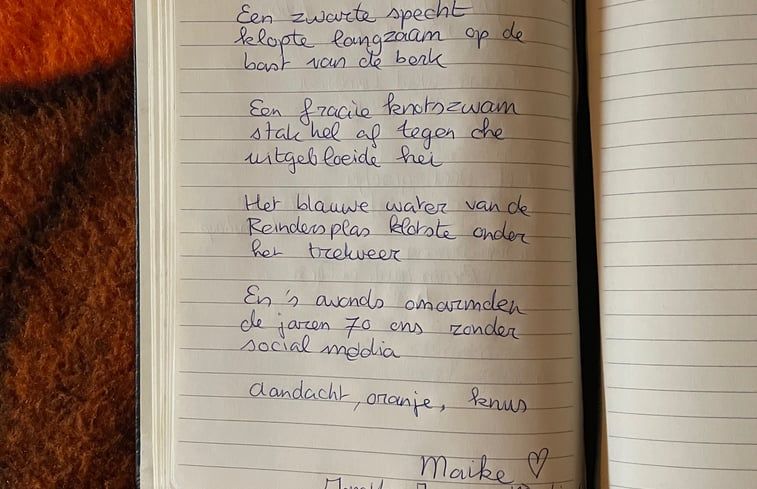 Een zwarte specht
klopte langzaam op de
bast van de berk
Een fraciie knotszwam
stak hel af tegen che
uitgebloeide hei
Het blauwe water van de
Reindersplas klotste onder
het trekveer
En 's avonds omarmden
de jaren 70 ons zonder
social media
aandacht, oranje, knus
Maike ♡